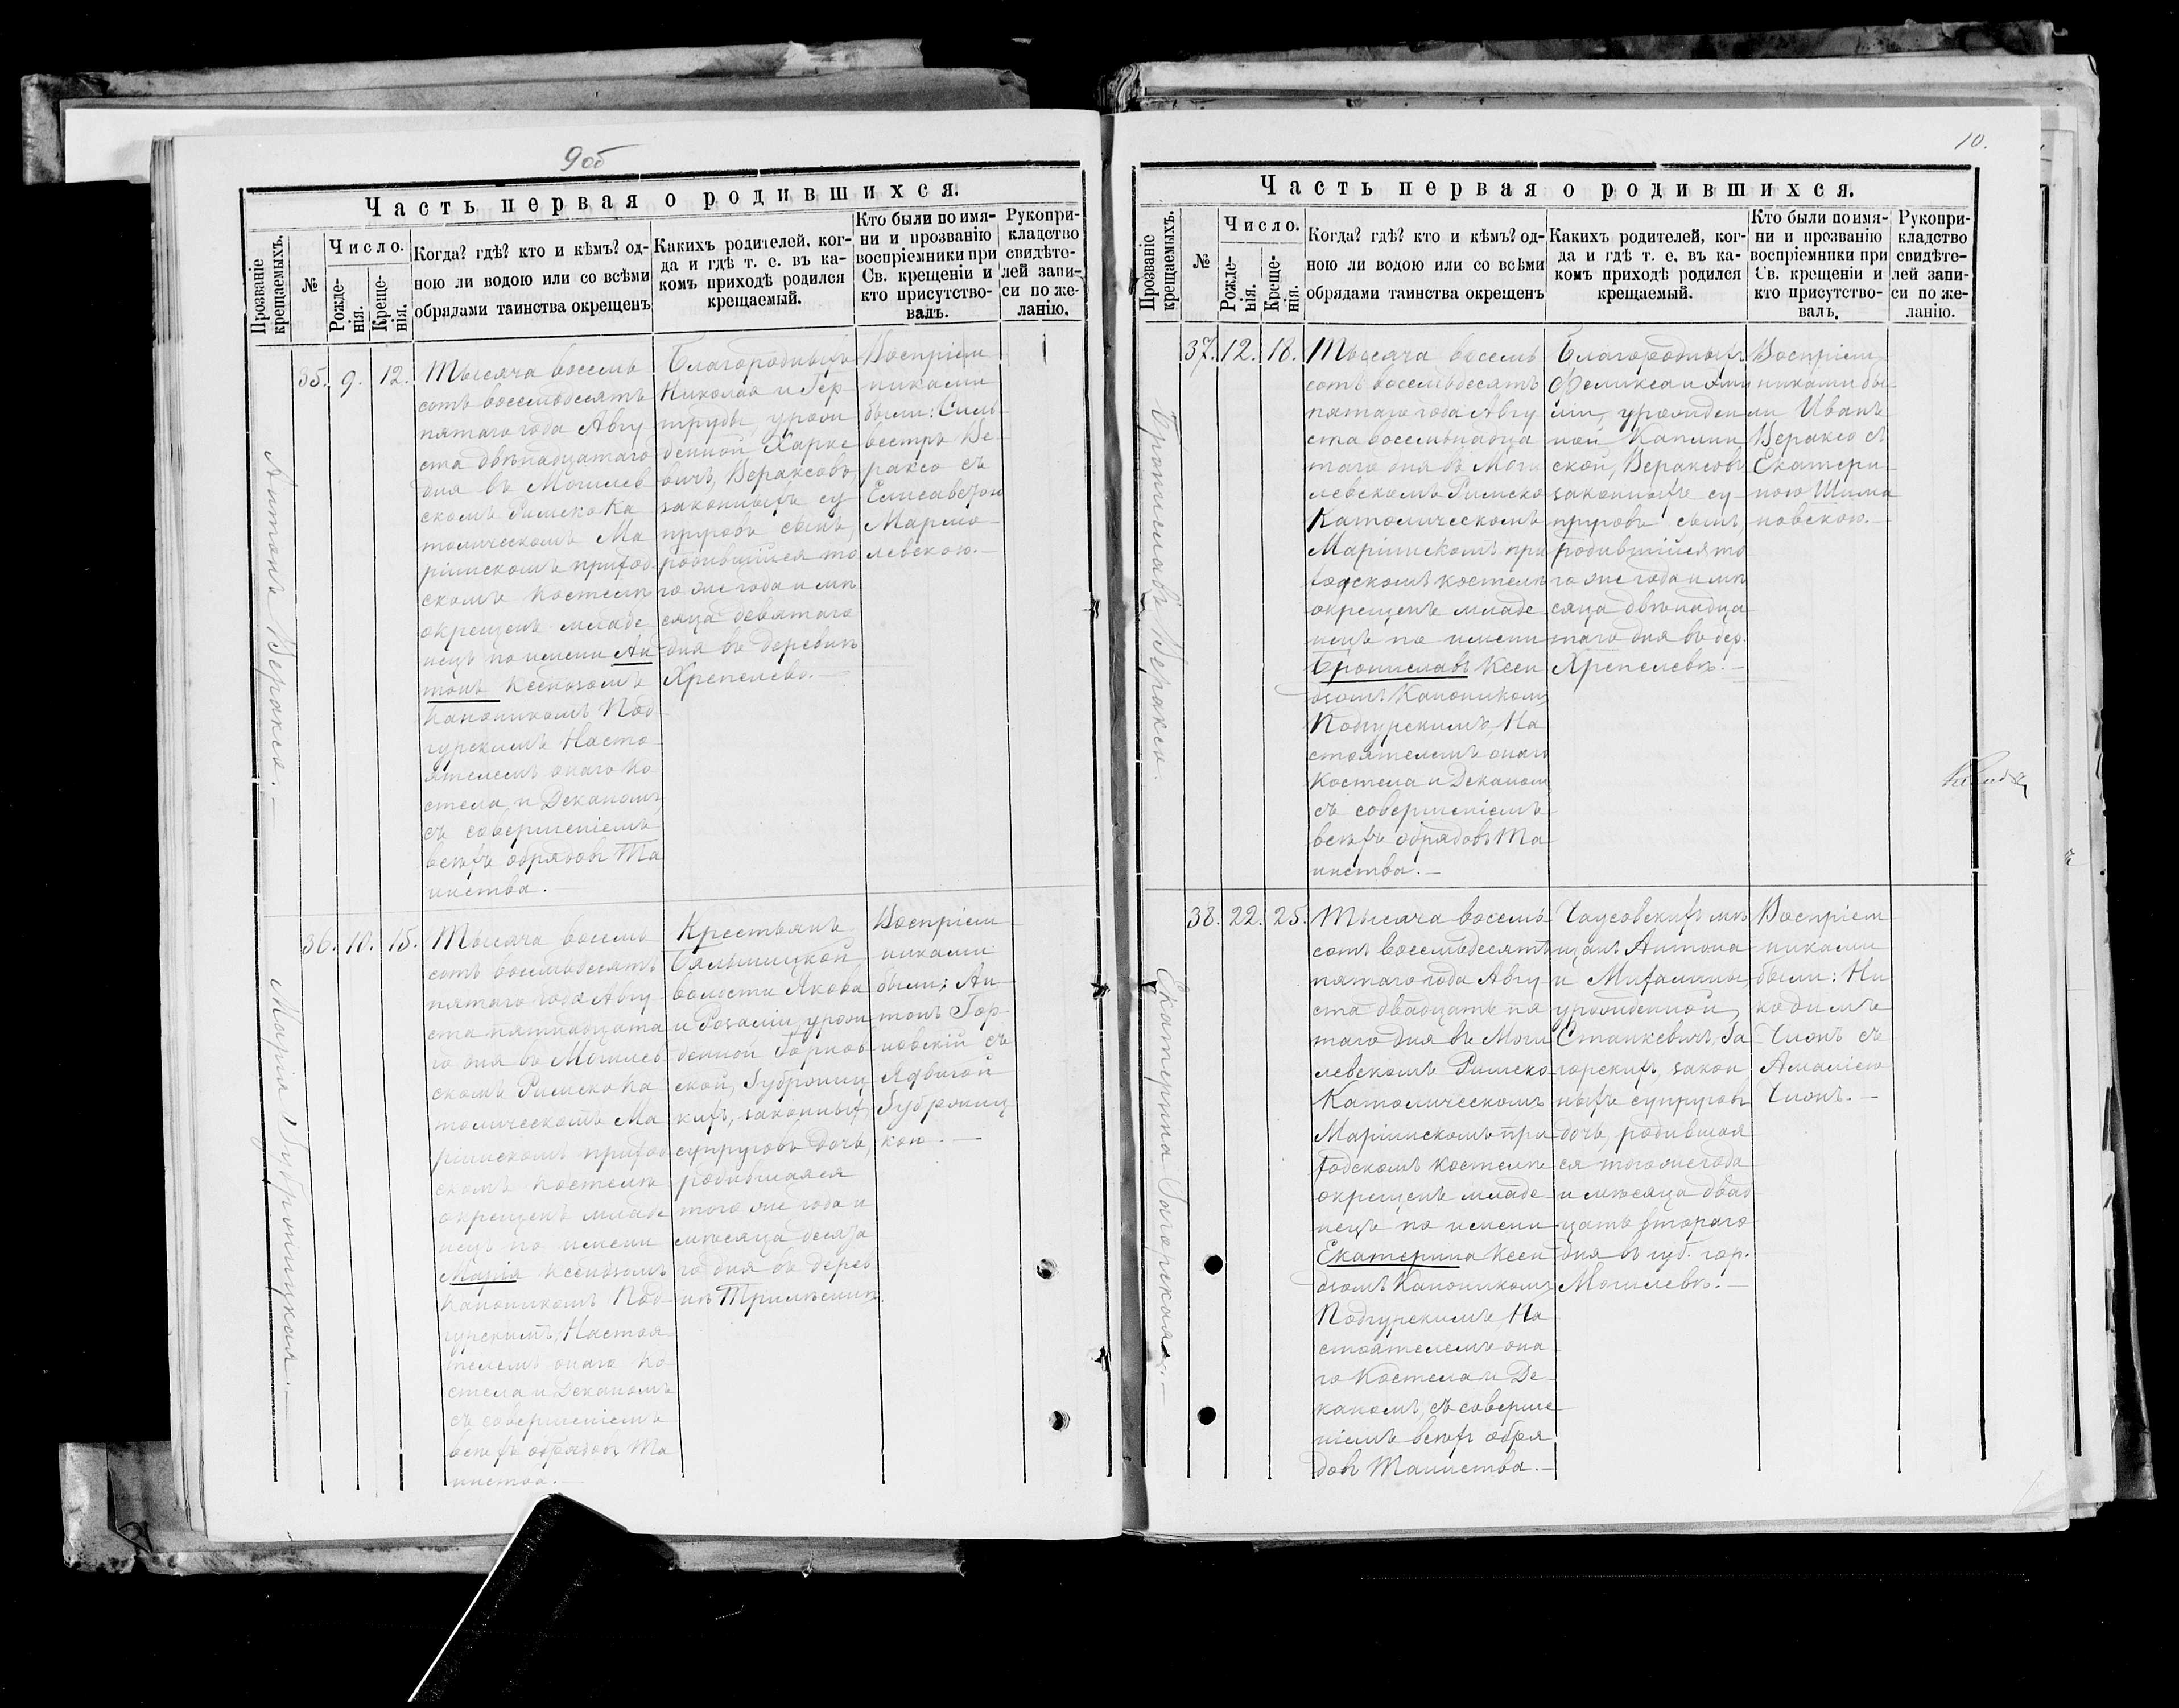 9об
Часть первая о родившихся.
Прозваніе крещаемыхъ.
№
Число.
Рожде-
нія.
Креще-
нія.
Когда? гдѣ? кто и кѣмъ? од-
ною ли водою или со всѣми
обрядами таинства окрещенъ
Какихъ родителей, ког-
да и гдѣ т. е. въ ка-
комъ приходѣ родился
крещаемый.
Кто были по имя-
ни и прозванію
воспріемники при
Св. крещеніи и
кто присутство-
валъ.
Рукопри-
кладство
свидѣте-
лей запи-
си по же-
ланію.
Антонъ Вераксо.
35. 9. 12.
Тысяча восемь
сотъ восемьдесятъ
пятаго года Авгу
ста двѣнадцатаго
дня въ Могилев
скомъ Римско Ка
толическомъ Ма
ріинскомъ приход
скомъ костелѣ
окрещенъ младе
нецъ по имени Ан
тонъ Ксендзомъ
Каноникомъ Под
гурскимъ Насто
ятелемъ онаго Ко
стела и Деканомъ,
съ совершеніемъ
всѣхъ обрядовъ Та
инства.
Благородныхъ
Николая и Гер
труды, урож
денной Харке
вичъ, Вераксовъ
законныхъ су
пруговъ сынъ,
родившійся то
го же года и мѣ
сяца девятаго
дня въ деревнѣ
Хрепелево.
Воспріем
никами
были: Силь
вестръ Ве
раксо съ
Елисаветою
Мармо
левскою.
Марія Зубрицкая.
36. 10. 15.
Тысяча восемь
сотъ восемьдесятъ
пятаго года Авгу
ста пятнадцата
го дня въ Могилев
скомъ Римско Ка
толическомъ Ма
ріинскомъ приход
скомъ костелѣ
окрещенъ младе
нецъ по имени
Марія Ксендзомъ
Каноникомъ Под
гурскимъ, Настоя
телемъ онаго Ко
стела и Деканомъ
съ совершеніемъ
всѣхъ обрядовъ Та
инства.
Крестьянъ
волости Якова
и Розаліи, урож
денной
кихъ, законныхъ
супруговъ дочь,
родившаяся
того же года и
мѣсяца десята
го дня въ дерев
нѣ
Воспріем
никами
были: Ан
тонъ Гор
новскій съ
Ядвигой
кою.
10.
Часть первая о родившихся.
Прозваніе крещаемыхъ.
№
Число.
Рожде-
нія.
Креще-
нія.
Когда? гдѣ? кто и кѣмъ? од-
ною ли водою или со всѣми
обрядами таинства окрещенъ
Какихъ родителей, ког-
да и гдѣ т. е. въ ка-
комъ приходѣ родился
крещаемый.
Кто были по имя-
ни и прозванію
воспріемники при
Св. крещеніи и
кто присутство-
валъ.
Рукопри-
кладство
свидѣте-
лей запи-
си по же-
ланію.
Брониславъ Вераксо.
37. 12. 18.
Тысяча восемь
сотъ восемьдесятъ
пятаго года Авгу
ста восемьнадца
таго дня въ Моги
левскомъ Римско
Католическомъ
Маріинскомъ при
ходскомъ костелѣ
окрещенъ младе
нецъ по имени
Брониславъ Ксен
дзомъ Каноникомъ
Подгурскимъ, На
стоятелемъ онаго
Костела и Деканомъ
съ совершеніемъ
всѣхъ обрядовъ Та
инства.
Благородныхъ
Феликса и Эми
ліи, урожден
ной Каплин
ской, Вераксовъ
законныхъ су
пруговъ сынъ,
родившійся то
го же года и мѣ
сяца двѣнадца
таго дня въ дер.
Хрепелевѣ.
Воспріем
никами бы
ли Иванъ
Вераксо съ
Екатери
ною Шима
новскою.
Екатерина Загорская.
38. 22. 25.
Тысяча восемь
сотъ восемьдесятъ
пятаго года Авгу
ста двадцать пя
таго дня въ Моги
левскомъ Римско
Католическомъ
Маріинскомъ при
ходскомъ костелѣ
окрещенъ младе
нецъ по имени
Екатерина Ксен
дзомъ Каноникомъ
Подгурскимъ, На
стоятелемъ она
го Костела и Де
каномъ, съ соверше
ніемъ всѣхъ обря
довъ Таинства.
Чаусовскихъ мѣ
щанъ Антона
и Михалины,
урожденной
Станкевичъ, За
горскихъ, закон
ныхъ супруговъ
дочь, родившая
ся того же года
и мѣсяца двад
цать втораго
дня въ губ. гор.
Могилевѣ.
Воспріем
никами
были: Ни
кодимъ
Чижъ съ
Амаліею
Чижъ.